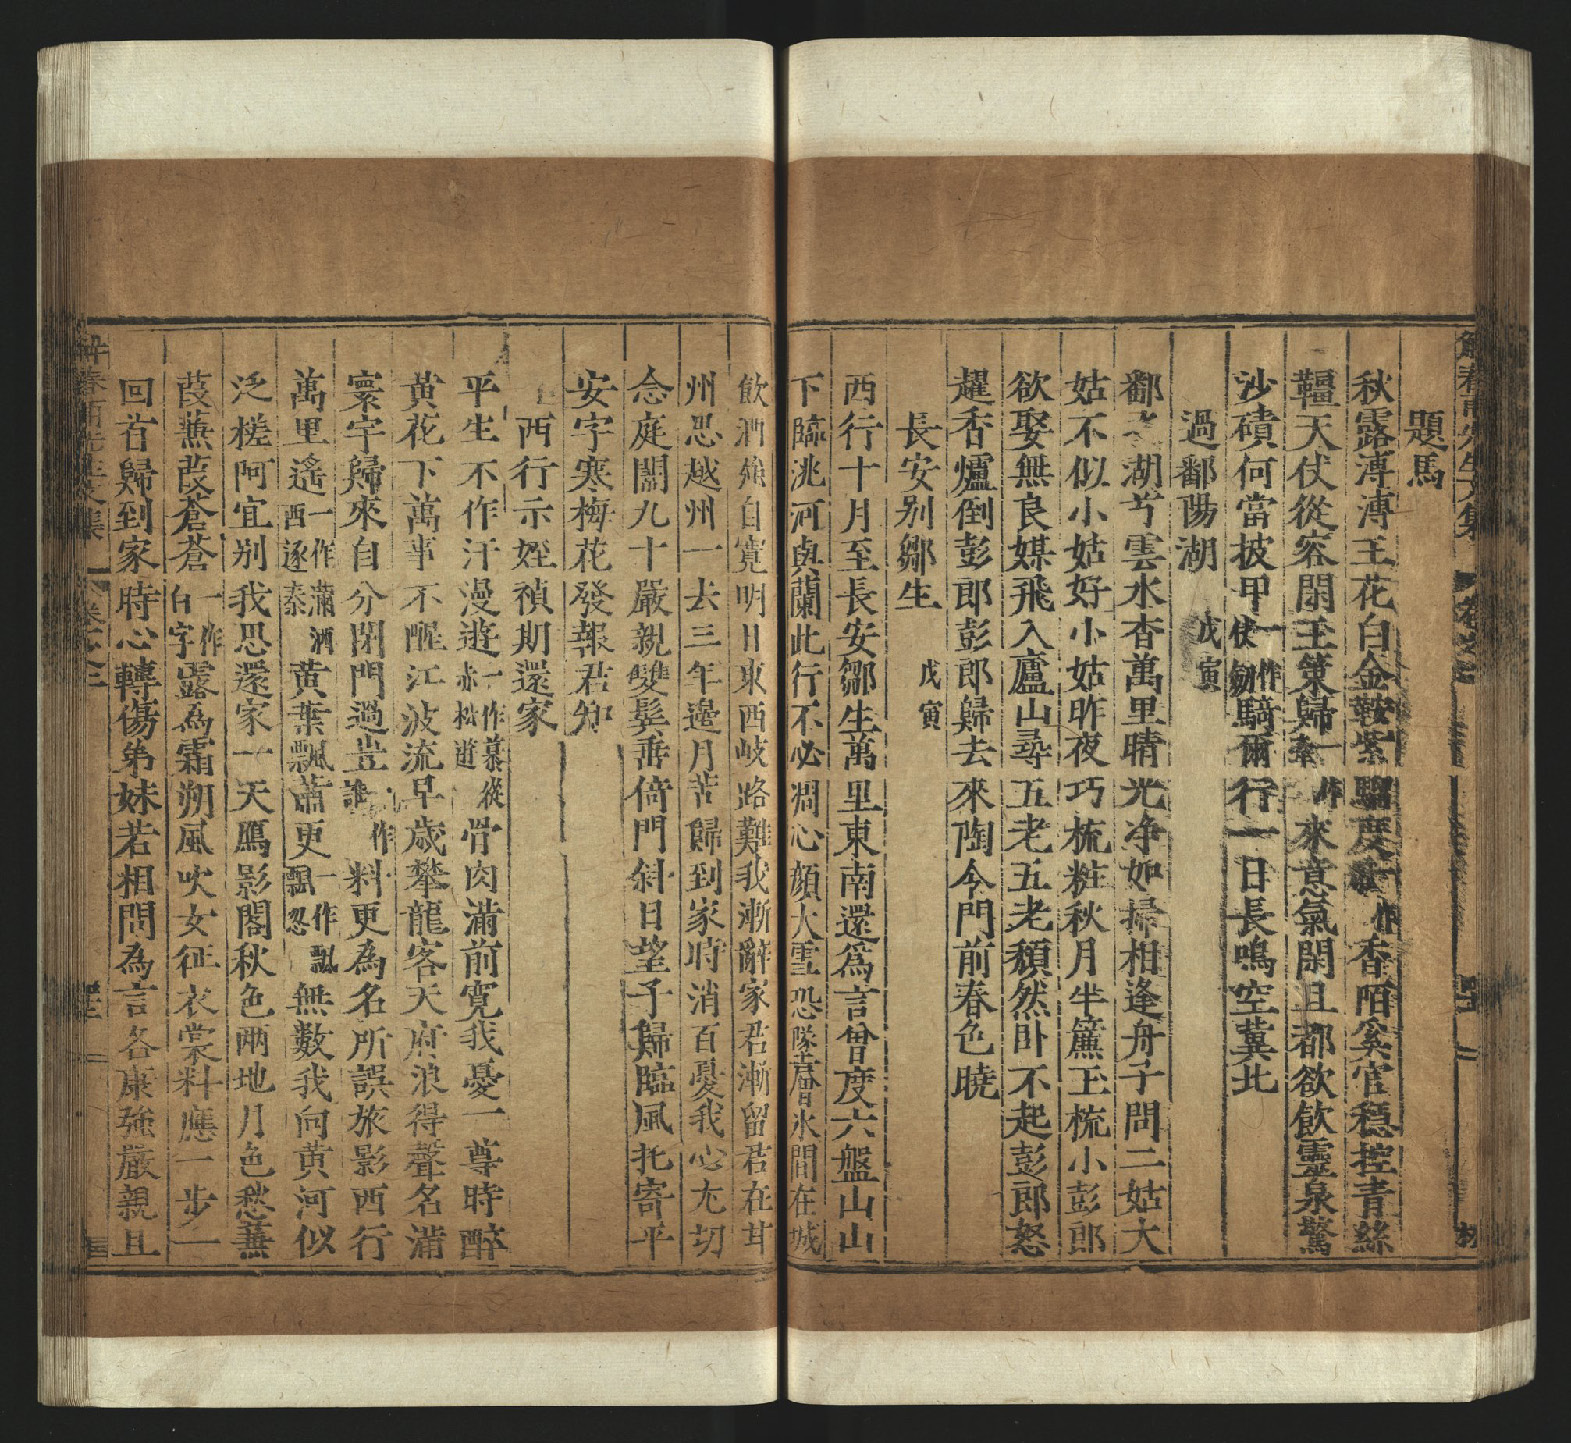 題馬
秋露漙漙王花白金鞍紫騮度一作香陌奚官穩控青絲
韁天仗從容閑玉策歸一作來意氣閑且都欲飲靈泉驚
沙磧何當披甲一作仗劒騎爾行一日長鳴空冀北
過鄱陽湖 戊寅
鄱之湖兮雲水杳萬里晴光净如掃相逢舟子問二姑大
姑不似小姑好小姑昨夜巧梳粧秋月半簾玉梳小彭郎
欲娶無良媒飛入廬山尋五老五老頹然卧不起彭郎怒
趯香爐倒彭郎彭郎歸去來陶令門前春色曉
長安别鄒生 戊寅
西行十月至長安鄒生萬里東南還爲言曾度六盤山山
下臨洮河與蘭此行不必凋心顔大雪恐墜層氷間在城
飲酒強自寬明日東西岐路難我漸辭家君漸留君在茸
州恐越州一去三年邊月苦歸到家時消百憂我心尤切
念庭闈九十嚴親雙鬂垂倚門斜日望子歸臨風托寄平
安字寒梅花發報君知
西行示姪禎期還家
平生不作汗漫遊一作慕從赤松遊骨肉滿前寛我憂一尊時醉
黄花下萬事不醒江波流早歳攀龍客天府浪得聲名滿
寰宇歸來自分閉門過豈一作誰料更為名所誤旅影西行
萬里遙一作瀟洒西逐秦黄葉飄蕭更一作飄飄忽無數我向黄河似
泛槎阿宜别我思還家一天鴈影閣秋色兩地月色愁蒹
葭蒹葭蒼蒼一作白字露為霜朔風吹女征衣裳料應一步一
回首歸到家時心轉傷弟妹若相問為言各康強嚴親且